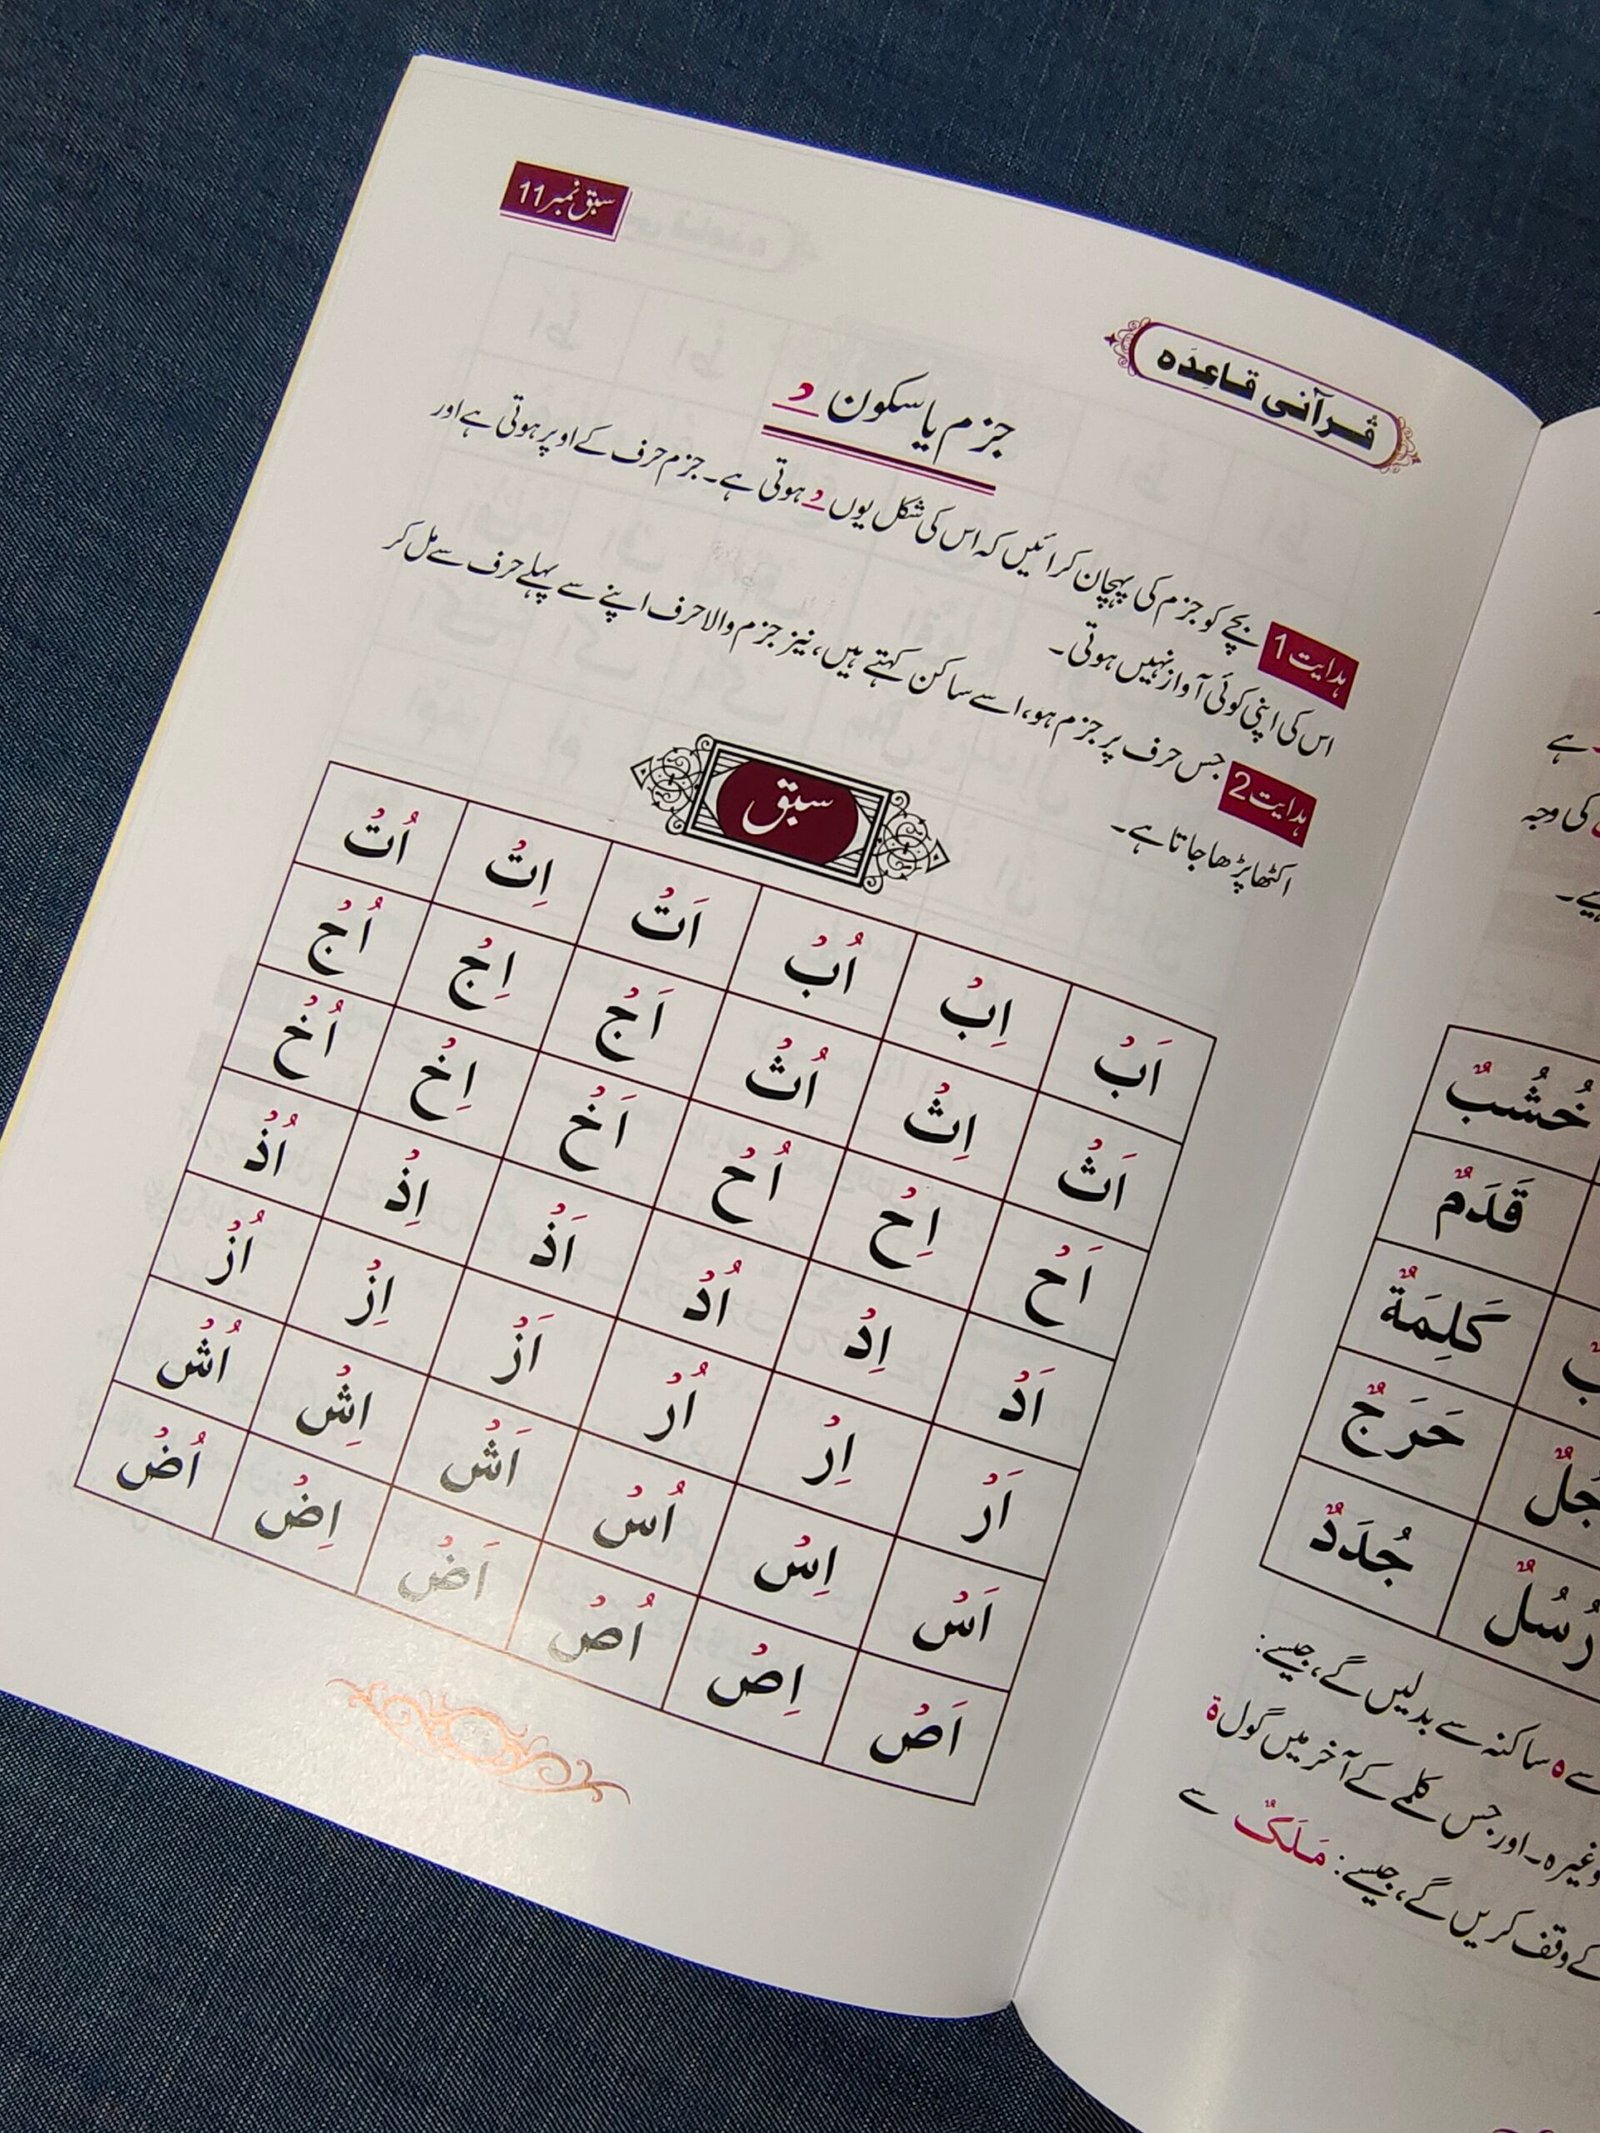 قرآنی قاعدہ
سبق نمبر 11
جزم یا سکون
ہدایت 1 بچے کو جزم کی پہچان کرائیں کہ اس کی شکل یوں ہوتی ہے۔ جزم حرف کے اوپر ہوتی ہے اور
اس کی اپنی کوئی آواز نہیں ہوتی۔
ہدایت 2 جس حرف پر جزم ہو، اسے ساکن کہتے ہیں، نیز جزم والا حرف اپنے سے پہلے حرف سے مل کر
اکٹھا پڑھا جاتا ہے۔
سبق
اَبْ اِبْ اُبْ اَتْ اِتْ اُتْ
اَثْ اِثْ اُثْ اَجْ اِجْ اُجْ
اَحْ اِحْ اُحْ اَخْ اِخْ اُخْ
اَدْ اِدْ اُدْ اَذْ اِذْ اُذْ
اَرْ اِرْ اُرْ اَزْ اِزْ اُزْ
اَسْ اِسْ اُسْ اَشْ اِشْ اُشْ
اَصْ اِصْ اُصْ اَضْ اِضْ اُضْ
ہے
کی وجہ
خُشُبٌ
قَدَمٌ
كَلِمَةٌ
حَرَجٌ
جُدَدٌ
رُسُلٌ
سے ہ ساکنہ سے بدلیں گے، جیسے:
وغیرہ۔ اور جس کلمے کے آخر میں گول ة
کے وقف کریں گے، جیسے: مَلَكٌ سے